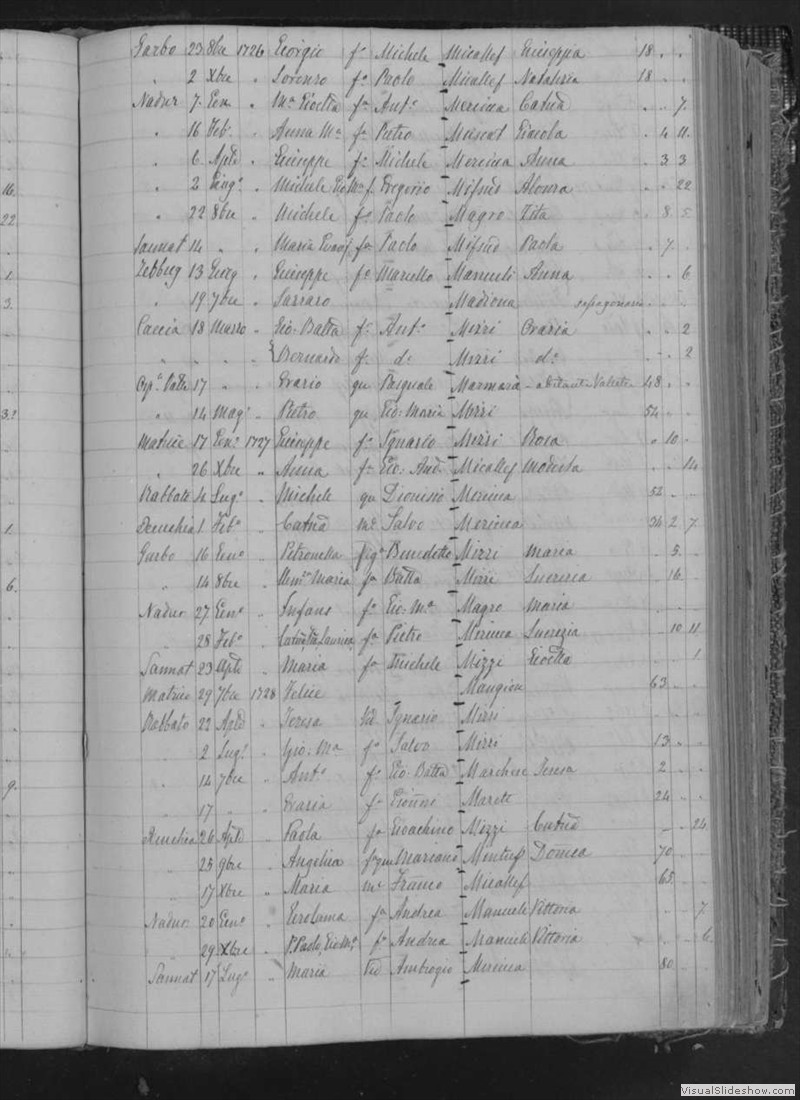 Garbo 23 8bre 1726 Giorgio fo Michele Micallef Giuseppia 18 . .
" 2 Xbre " Lorenzo fo Paolo Micallef Natalizia 18 . .
Nadur 7 Gen. " Ma Gioetta fa Anto Mercieca Catna . . 7
" 16 Feb. " Anna Ma fa Pietro Muscat . 4 11
" 6 Aple " Giuseppe fo Michele Mercieca Anna . 3 3
" 2 Giugo " Michele Gio Ma f. Gregorio Mifsud Alonza . . 22
" 22 8bre " Michele fo Paolo Magro Zita . 8 5
Sannat 14 " " Maria fa Paolo Mifsud Paola . 7 .
Zebbug 13 " Giuseppe fo Marcello Manueli Anna . . 6
" 19 7bre " Sarraro Madiona
Caccia 18 Marzo " Gio: Batta fo Anto Mizzi Grazia . . 2
" " " " Bernardo fo do Mizzi do . . 2
17 " " Grazio qu Pasquale Marmarà 48 . .
" 14 Mago " Pietro qu Gio: Maria Mizzi 54 . .
Matrice 17 Geno 1727 Giuseppe fo Ignazio Mizzi Rosa . 10 .
" 26 Xbre " Anna fa Gio: And. Micallef Modesta . . 14
Rabbato 4 Lugo " Michele qu Dionisio Mercieca 52 . .
1 Febo " Catna me Salvo Mercieca 34 2 7
Garbo 16 Geno " Petronella figa Benedetto Mizzi Maria . 5 .
" 14 8bre " Maria fa Batta Mizzi Lucrezia . 16 .
Nadur 27 Geno " Infans fo Gio: Ma Magro Maria . . .
" 28 Febo " fa Pietro Mercieca Lucrezia . 10 11
Sannat 23 Aple " Maria fa Michele Mizzi Gioetta . . 1
Matrice 29 7bre 1728 Felice Mangion 63 . .
Rabbato 22 Aple " Teresa Va Ignazio Mizzi
" 2 Lugo " Gio: Ma fo Salvo Mizzi 13 . .
" 14 7bre " Anto fo Gio Batta Marchese Teresa 2 . .
" 17 " " Grazia fa Gionni 24 . .
26 Aple " Paola fa Gioachino Mizzi Catna . . 24
" 25 9bre " Angelica fa qm Mariano Mintuf Domca 70 . .
" 17 Xbre " Maria me Franco Micallef 65 . .
Nadur 20 Geno " Gerolama fa Andrea Manueli Vittoria . . 7
" 29 Xbre " P. Paolo, Gio Ma fo Andrea Manueli Vittoria . . 6
Sannat 17 Lugo " Maria Va Ambrogio Mercieca 80 . .
16.
22
1
3.
3?
1.
6.
9.
VisualSlideshow.com